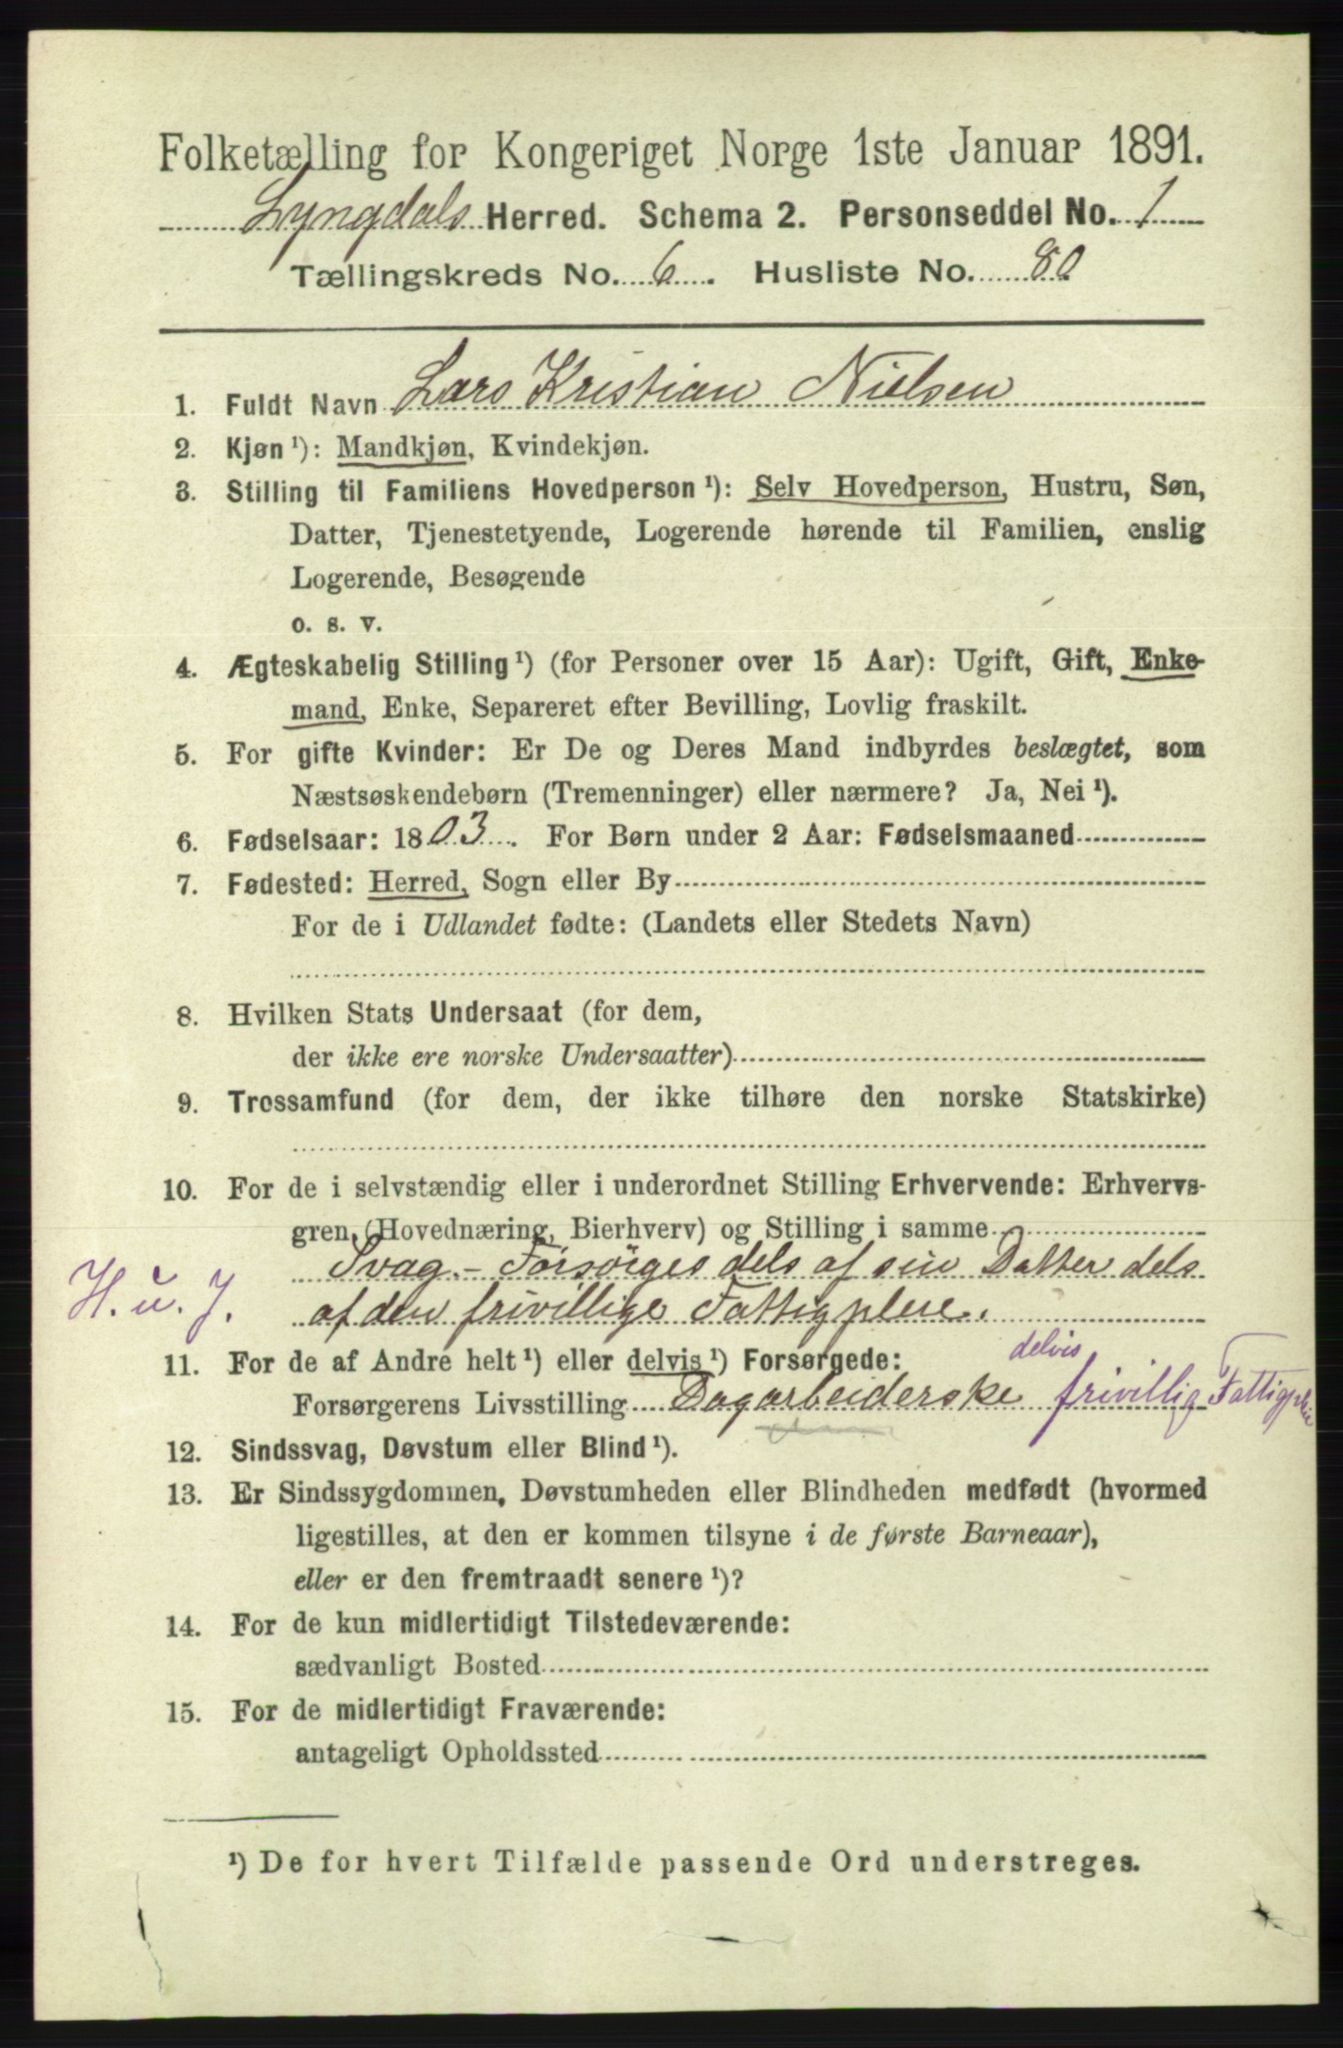 Folketælling for Kongeriget Norge 1ste Januar 1891.
Lyngdals Herred. Schema 2. Personseddel No. 1
Tællingskreds No. 6. Husliste No. 80
1. Fuldt Navn Lars Kristian Nielsen
2. Kjøn ¹): Mandkjøn, Kvindekjøn.
3. Stilling til Familiens Hovedperson ¹): Selv Hovedperson, Hustru, Søn,
Datter, Tjenestetyende, Logerende hørende til Familien, enslig
Logerende, Besøgende
o. s. v.
4. Ægteskabelig Stilling ¹) (for Personer over 15 Aar): Ugift, Gift, Enke-
mand, Enke, Separeret efter Bevilling, Lovlig fraskilt.
5. For gifte Kvinder: Er De og Deres Mand indbyrdes beslægtet, som
Næstsøskendebørn (Tremenninger) eller nærmere? Ja, Nei ¹).
6. Fødselsaar: 1803. For Børn under 2 Aar: Fødselsmaaned
7. Fødested: Herred, Sogn eller By
For de i Udlandet fødte: (Landets eller Stedets Navn)
8. Hvilken Stats Undersaat (for dem,
der ikke ere norske Undersaatter)
9. Trossamfund (for dem, der ikke tilhøre den norske Statskirke)
10. For de i selvstændig eller i underordnet Stilling Erhvervende: Erhvervs-
gren, (Hovednæring, Bierhverv) og Stilling i samme
Svag. - Forsørges dels af sin Datter dels
H. u. J. af den frivillige Fattigpleie.
11. For de af Andre helt ¹) eller delvis ¹) Forsørgede:
delvis
Forsørgerens Livsstilling Dagarbeiderske frivillig Fattigpleie
12. Sindssvag, Døvstum eller Blind ¹).
13. Er Sindssygdommen, Døvstumheden eller Blindheden medfødt (hvormed
ligestilles, at den er kommen tilsyne i de første Barneaar),
eller er den fremtraadt senere ¹)?
14. For de kun midlertidigt Tilstedeværende:
sædvanligt Bosted
15. For de midlertidigt Fraværende:
antageligt Opholdssted
¹) De for hvert Tilfælde passende Ord understreges.